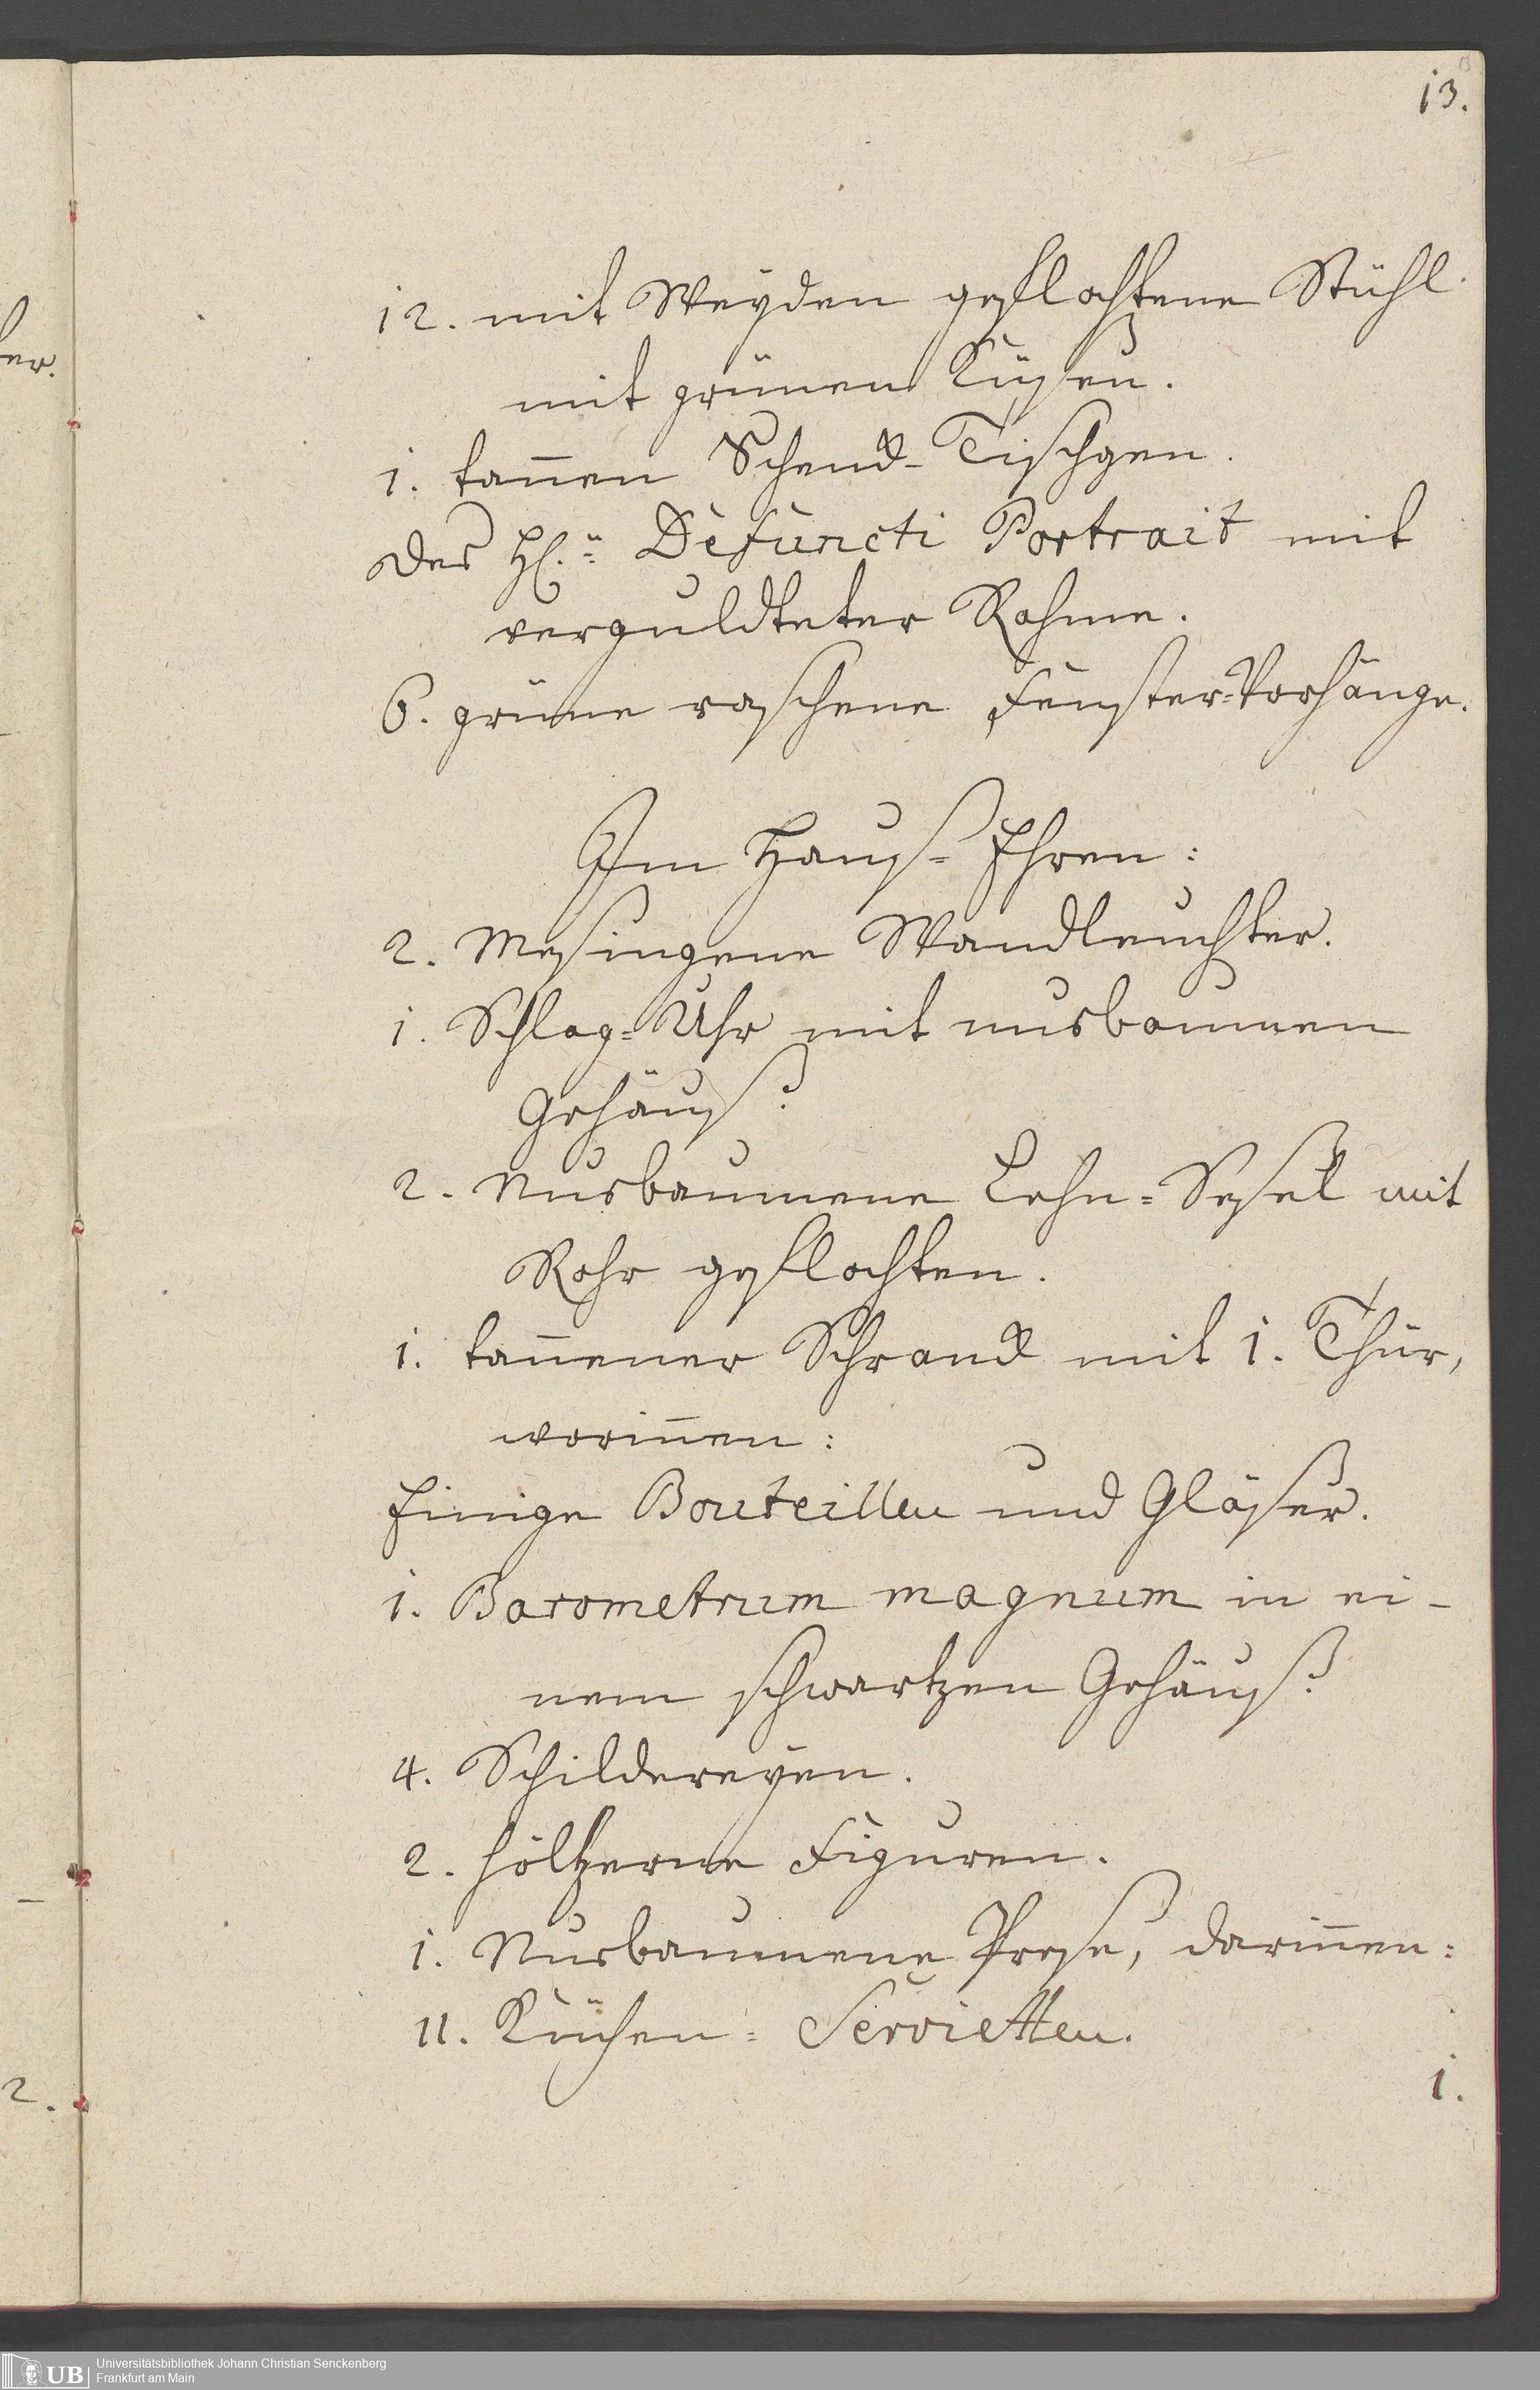 13.
12. mit Weÿden geflochtene Stühl
mit grünen Küßen.
1. tan̄en Schenck-Tischgen.
des H: Defuncti Portrait mit
verguldteter Rahme.
6. grüne raschene Fenster-Vorhänge.
Im Hauß-Ehren:
2. Meßingene Wandleuchter.
1. Schlag-Uhr mit nusbaumen
Gehäuß.
2. Nusbaumene Lehn-Seßel mit
Rohr geflochten.
1. tan̄ener Schranck mit 1. Thür,
worin̄en:
Einige Bouteillen und Gläßer.
1. Barometrum magnum in ei-
nem schwartzen Gehäuß.
4. Schildereÿen.
2. höltzerne Figuren.
1. Nusbaumene Preße, darin̄en:
11. Küchen-Servietten.
1.
er.
2.
UB Universitätsbibliothek Johann Christian Senckenberg
Frankfurt am Main